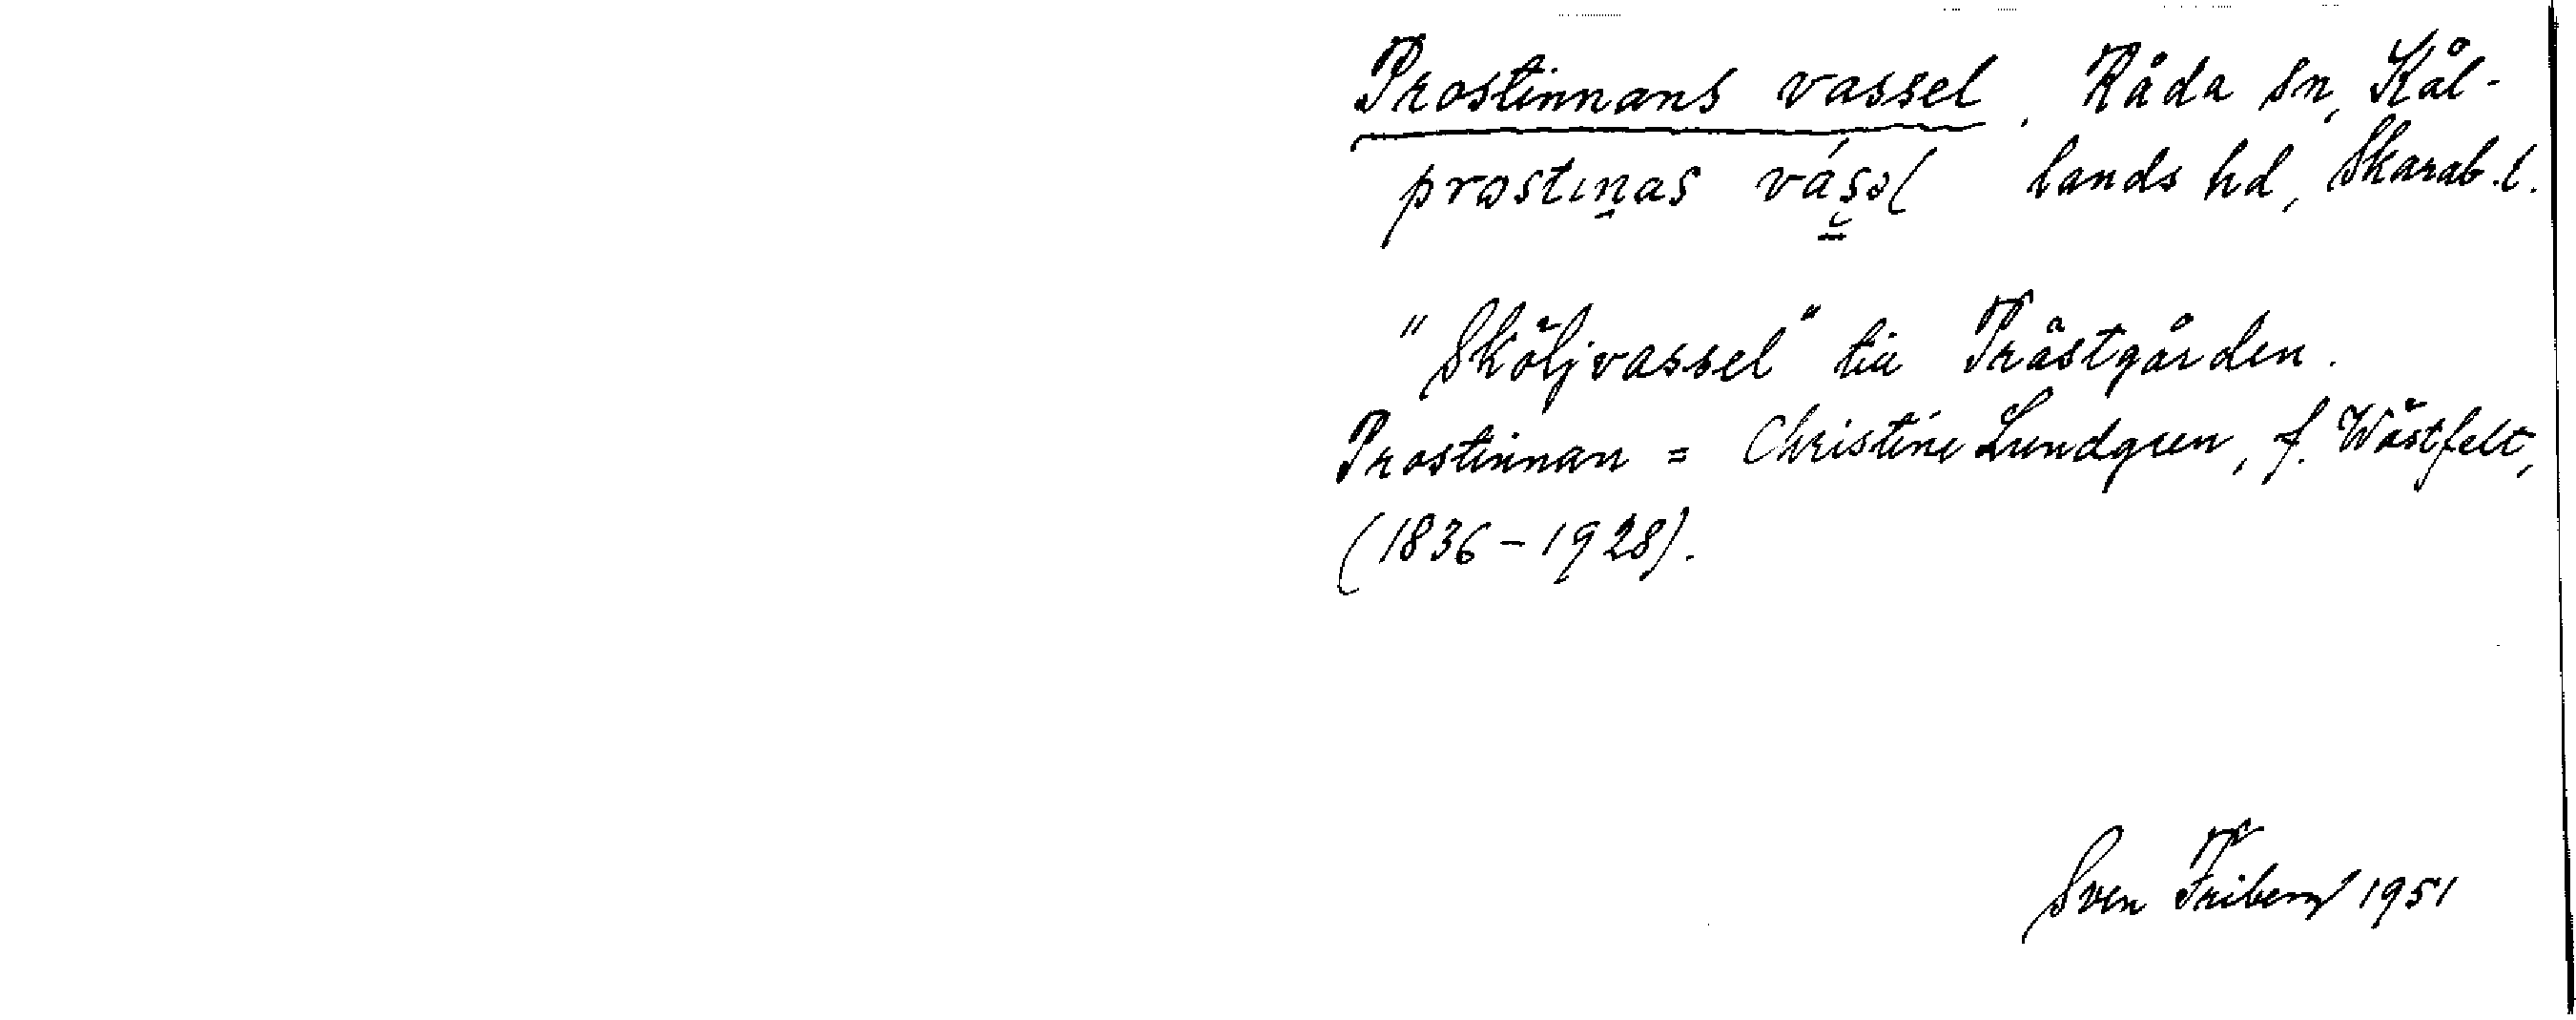 Prostinnans vassel. Råda sn, Kål-
prostinas vásəl lands hd, Skarab.l.
"Sköljvassel" till Prästgården.
Prostinnan = Christine Lundgren, f. Wästfelt,
(1836-1928).
Sven Friberg 1951